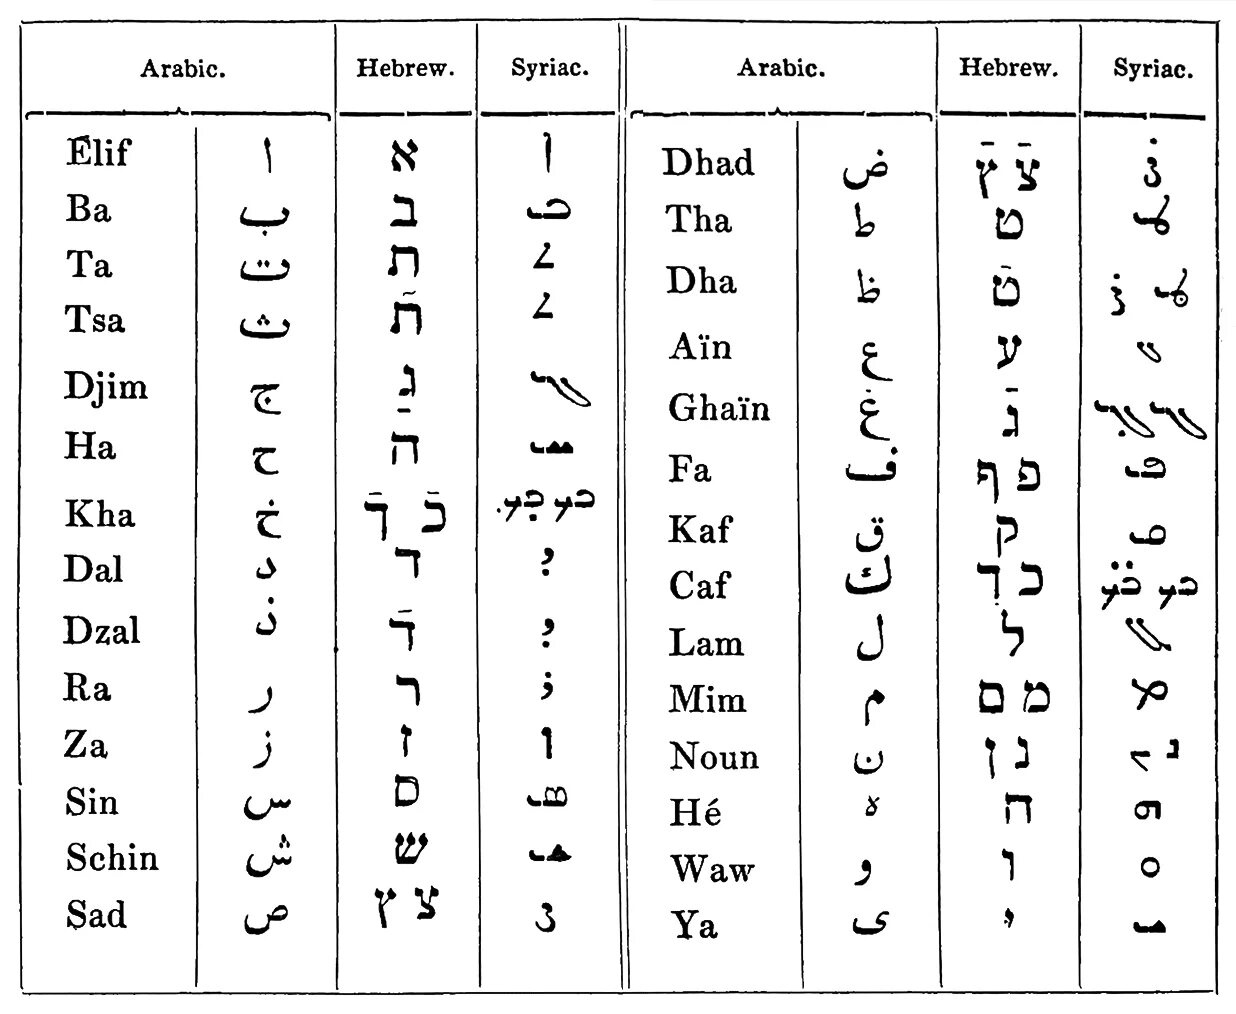 Arabic. Hebrew. Syriac. Arabic. Hebrew. Syriac.
Elif ا א ܐ
Ba ب ב ܒ
Ta ت ת ܬ
Tsa ث ת̄ ܬ
Djim ج ג̱ ܓ
Ha ح ה ܚ
Kha خ כ̄ ך̄ ܟ ܟ̣
Dal د ד ܕ
Dzal ذ ד̄ ܕ
Ra ر ר ܪ
Za ز ז ܙ
Sin س ס ܣ
Schin ش ש ܫ
Sad ص צ ץ ܨ
Dhad ض צ̄ ץ̄ ܨ̇
Tha ط ט ܛ
Dha ظ ט̄ ܛ ܨ̇
Aïn ع ע ܥ
Ghaïn غ ג̄ ܓ ܓ̣
Fa ف פ ף ܦ
Kaf ق ק ܩ
Caf ك כ ך ܟ ܟ̈
Lam ل ל ܠ
Mim م מ ם ܡ
Noun ن נ ן ܢ
Hé ه ה ܗ
Waw و ו ܘ
Ya ى י ܝ